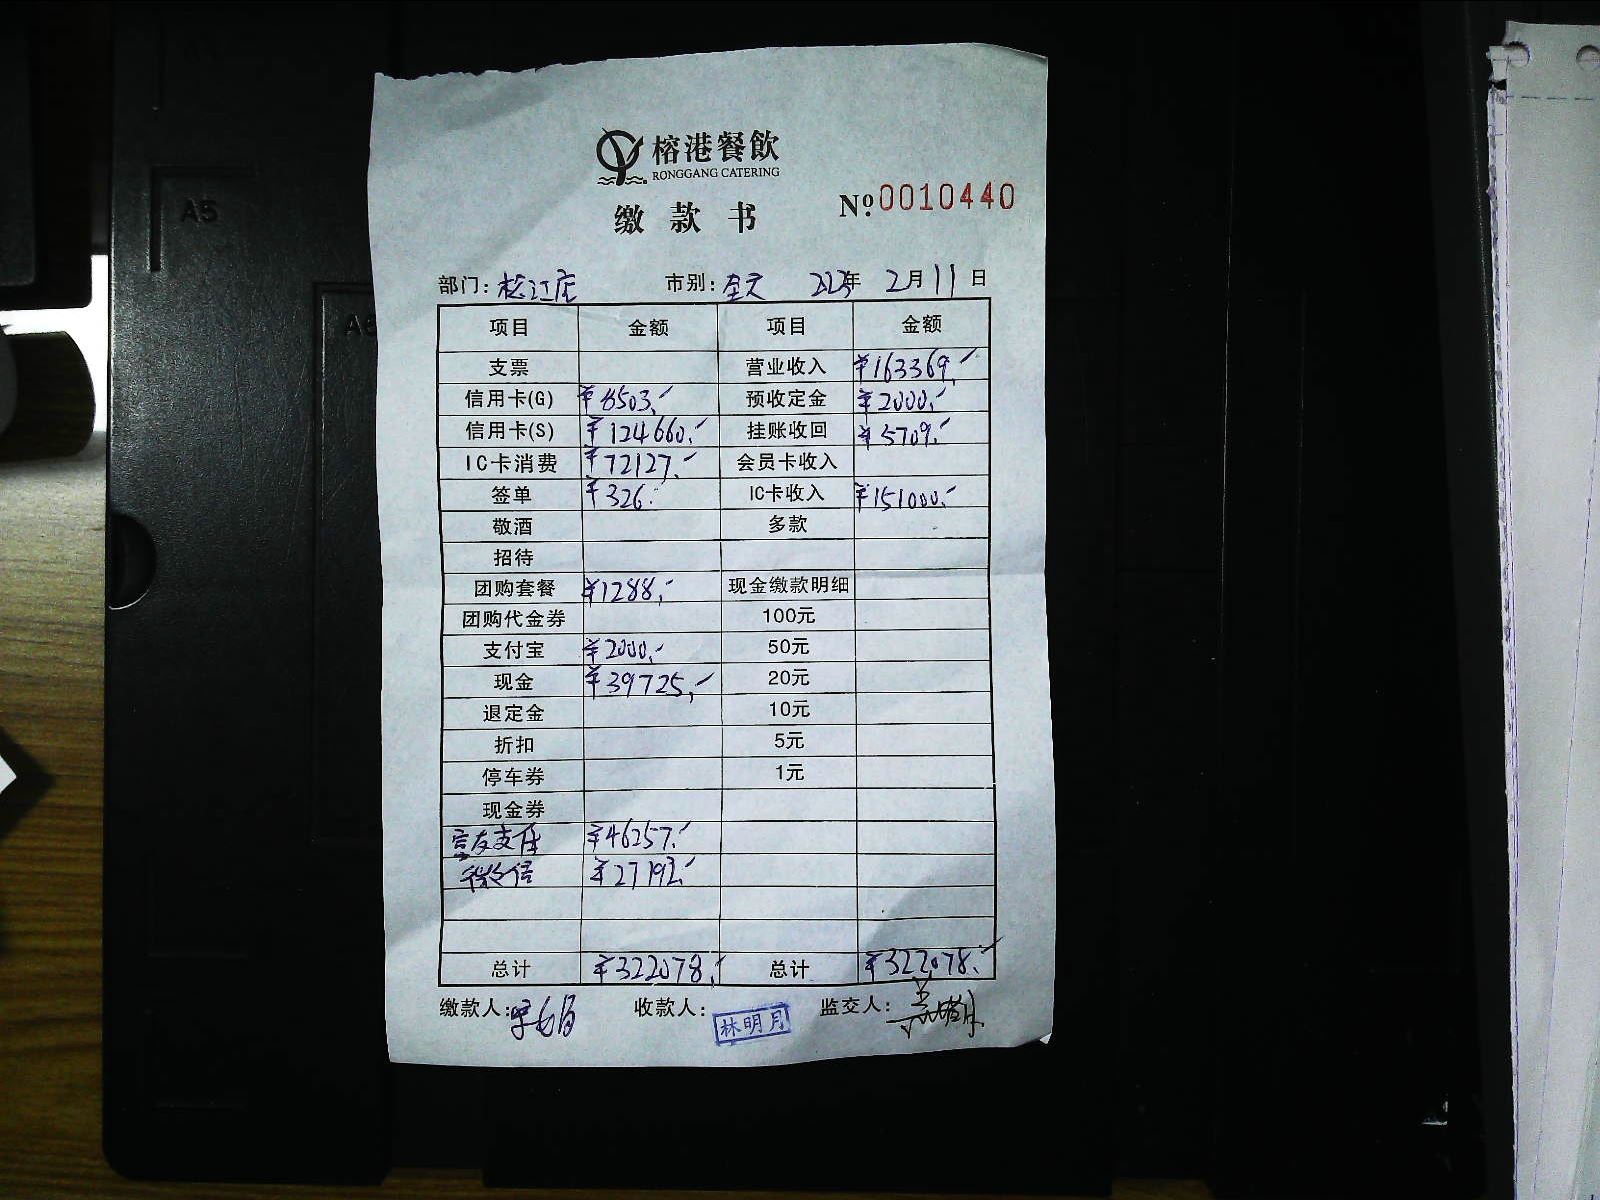 A5
榕港餐飲
RONGGANG CATERING
缴款书
Nº.0010440
部门：松江店 市别：全天 年 2月11日
项目 金额 项目 金额
支票 营业收入 ¥163369.-
信用卡(G) ¥8503.- 预收定金 ¥2000.-
信用卡(S) ¥124660.- 挂账收回 ¥5709.-
IC卡消费 ¥72127.- 会员卡收入
签单 ¥326.- IC卡收入 ¥151000.-
敬酒 多款
招待
团购套餐 ¥1288.- 现金缴款明细
团购代金券 100元
支付宝 ¥2000.- 50元
现金 ¥39725.- 20元
退定金 10元
折扣 5元
停车券 1元
现金券
富友支付 ¥46257.-
微信 ¥27192.-
总计 ¥322078.- 总计 ¥322078.-
缴款人： 收款人：林明月 监交人：